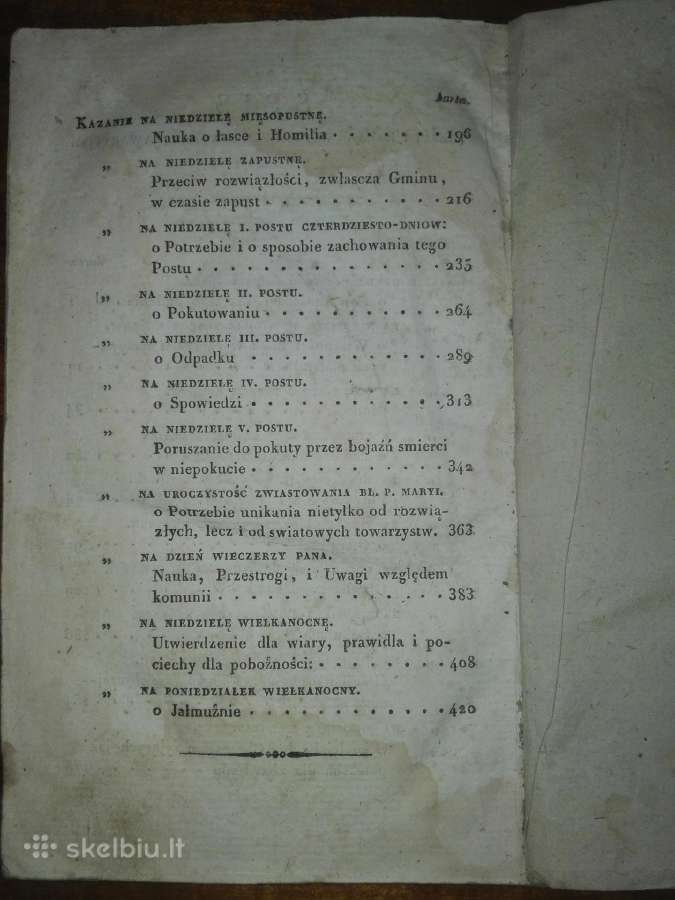 karta.
KAZANIE NA NIEDZIELĘ MIĘSOPUSTNĘ.
Nauka o łasce i Homilia • • • • • • • 196
„ NA NIEDZIELĘ ZAPUSTNĘ.
Przeciw rozwiązłości, zwłascza Gminu,
w czasie zapust • • • • • • • • • • • 216
„ NA NIEDZIELĘ I. POSTU CZTERDZIESTO-DNIOW:
o Potrzebie i o sposobie zachowania tego
Postu • • • • • • • • • • • • • • • 235
„ NA NIEDZIELĘ II. POSTU.
o Pokutowaniu • • • • • • • • • • • 264
„ NA NIEDZIELĘ III. POSTU.
o Odpadku • • • • • • • • • • • • 289
„ NA NIEDZIELĘ IV. POSTU.
o Spowiedzi • • • • • • • • • • • • 313
„ NA NIEDZIELĘ V. POSTU.
Poruszanie do pokuty przez bojaźń smierci
w niepokucie • • • • • • • • • • • • 342
„ NA UROCZYSTOŚĆ ZWIASTOWANIA BŁ. P. MARYI.
o Potrzebie unikania nietylko od rozwią-
złych, lecz i od swiatowych towarzystw. 363
„ NA DZIEŃ WIECZERZY PANA.
Nauka, Przestrogi, i Uwagi względem
komunii • • • • • • • • • • • • • • 383
„ NA NIEDZIELĘ WIELKANOCNĘ.
Utwierdzenie dla wiary, prawidła i po-
ciechy dla poboźności: • • • • • • • • 408
„ NA PONIEDZIAŁEK WIELKANOCNY.
o Jałmuźnie • • • • • • • • • • • • 420
skelbiu.lt